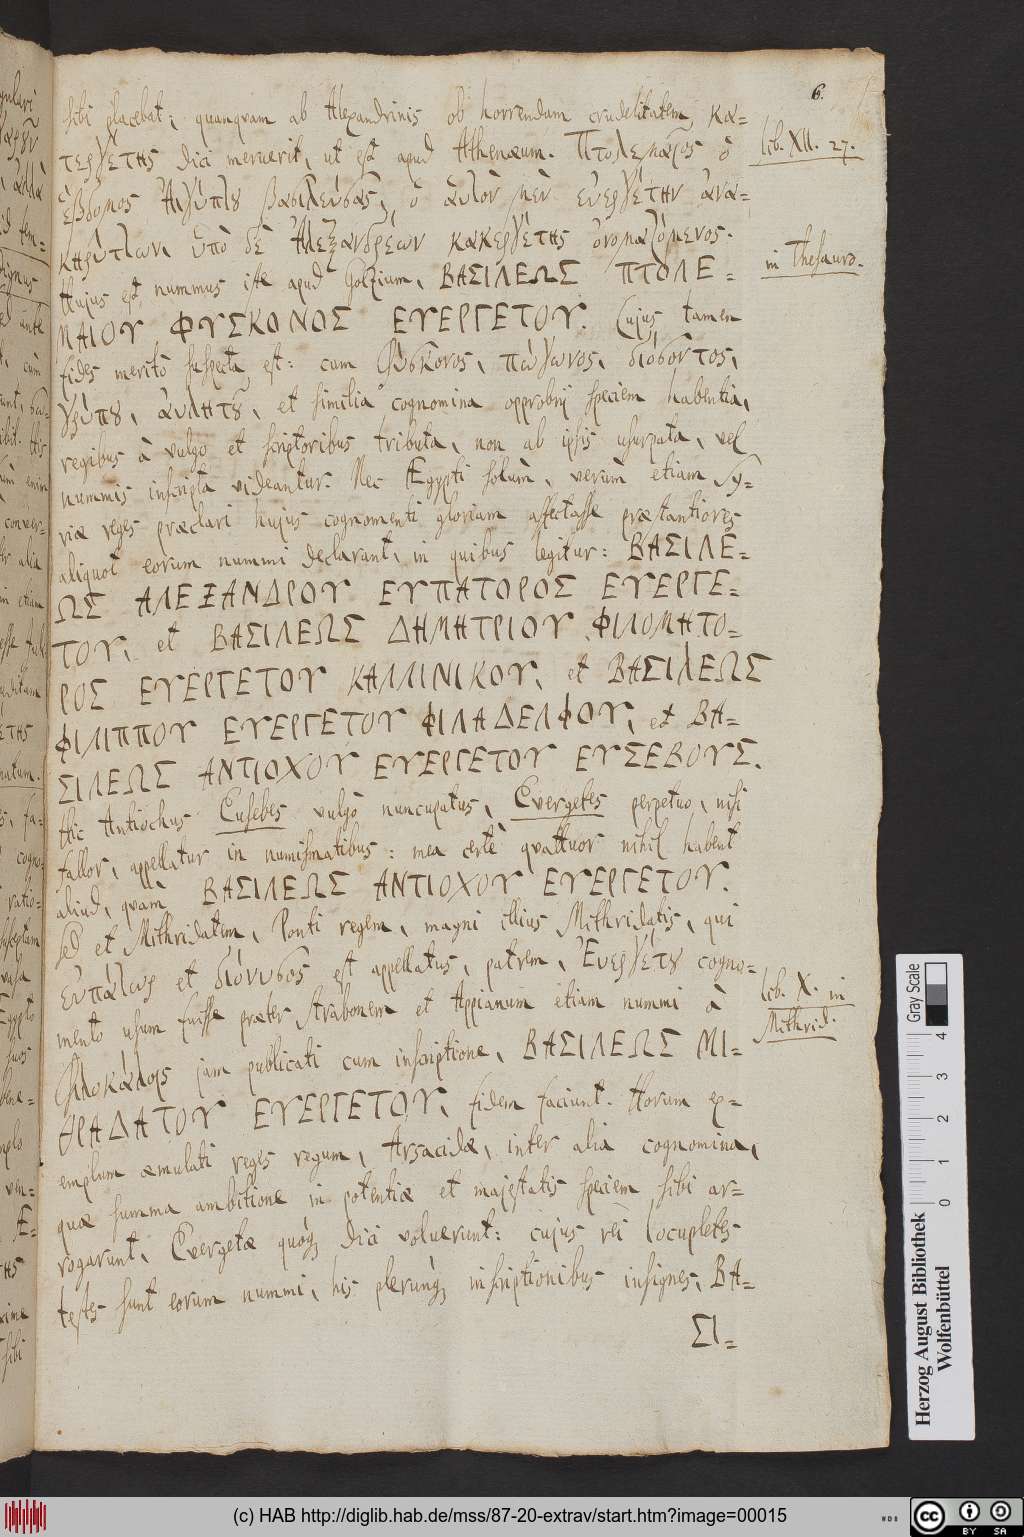 6.
sibi placebat; quanquam ab Alexandrinis ob horrendam crudelitatem κα=
κεργέτης dici meruerit, ut est apud Athenæum. Πτολεμαῖος ὁ
lib. XII. 27.
ἕβδομος Αἰγύπτου βασιλεύσας, ὁ αὑτὸν μὲν εὐεργέτην ἀνα=
κηρύττων, ὑπὸ δὲ Ἀλεξανδρέων κακεργέτης ὀνομαζόμενος.
in Thesauro.
Hujus est nummus iste apud Golzium, ΒΑΣΙΛΕΩΣ ΠΤΟΛΕ=
ΜΑΙΟΥ ΦΥΣΚΟΝΟΣ ΕΥΕΡΓΕΤΟΥ. Cujus tamen
fides meritò suspecta est: cum Φύσκονος, πώγωνος, διόδοντος,
γρύπου, ἀυλητοῦ, et similia cognomina opprobrij speciem habentia,
regibus à vulgo et scriptoribus tributa, non ab ipsis usurpata, vel
nummis inscripta videantur. Nec Ægypti solùm, verùm etiam Sy=
riæ reges præclari hujus cognomenti gloriam affectasse præstantiores
aliquot eorum nummi declarant, in quibus legitur: ΒΑΣΙΛΕ=
ΩΣ ΑΛΕΞΑΝΔΡΟΥ ΕΥΠΑΤΟΡΟΣ ΕΥΕΡΓΕ=
ΤΟΥ, et ΒΑΣΙΛΕΩΣ ΔΗΜΗΤΡΙΟΥ ΦΙΛΟΜΗΤΟ=
ΡΟΣ ΕΥΕΡΓΕΤΟΥ ΚΑΛΛΙΝΙΚΟΥ, et ΒΑΣΙΛΕΩΣ
ΦΙΛΙΠΠΟΥ ΕΥΕΡΓΕΤΟΥ ΦΙΛΑΔΕΛΦΟΥ, et ΒΑ=
ΣΙΛΕΩΣ ΑΝΤΙΟΧΟΥ ΕΥΕΡΓΕΤΟΥ ΕΥΣΕΒΟΥΣ.
Hic Antiochus Eusebes vulgò nuncupatus, Evergetes perpetuo, nisi
fallor, appellatur in numismatibus: mea certè quattuor nihil habent
aliud, quàm ΒΑΣΙΛΕΩΣ ΑΝΤΙΟΧΟΥ ΕΥΕΡΓΕΤΟΥ.
sed et Mithridatem, Ponti regem, magni illius Mithridatis, qui
εὐπάτωρ et διόνυσος est appellatus, patrem, Ἐυεργέτου cogno=
lib. X. in
mento usum fuisse præter Strabonem et Appianum etiam nummi à
Mithrid.
Φιλοκάλοις jam publicati cum inscriptione, ΒΑΣΙΛΕΩΣ ΜΙ=
ΘΡΑΔΑΤΟΥ ΕΥΕΡΓΕΤΟΥ, fidem faciunt. Horum ex=
emplum æmulati reges regum, Arsacidæ, inter alia cognomina,
quæ summa ambitione in potentiæ et majestatis speciem sibi ar=
rogarunt, Evergetæ quóq; dici voluerunt: cujus rei locupletes
testes sunt eorum nummi, his plerunq; inscriptionibus insignes, ΒΑ=
ΣΙ=
Gray Scale
0 1 2 3 4
Herzog August Bibliothek
Wolfenbüttel
(c) HAB http://diglib.hab.de/mss/87-20-extrav/start.htm?image=00015
WDB
cc BY SA